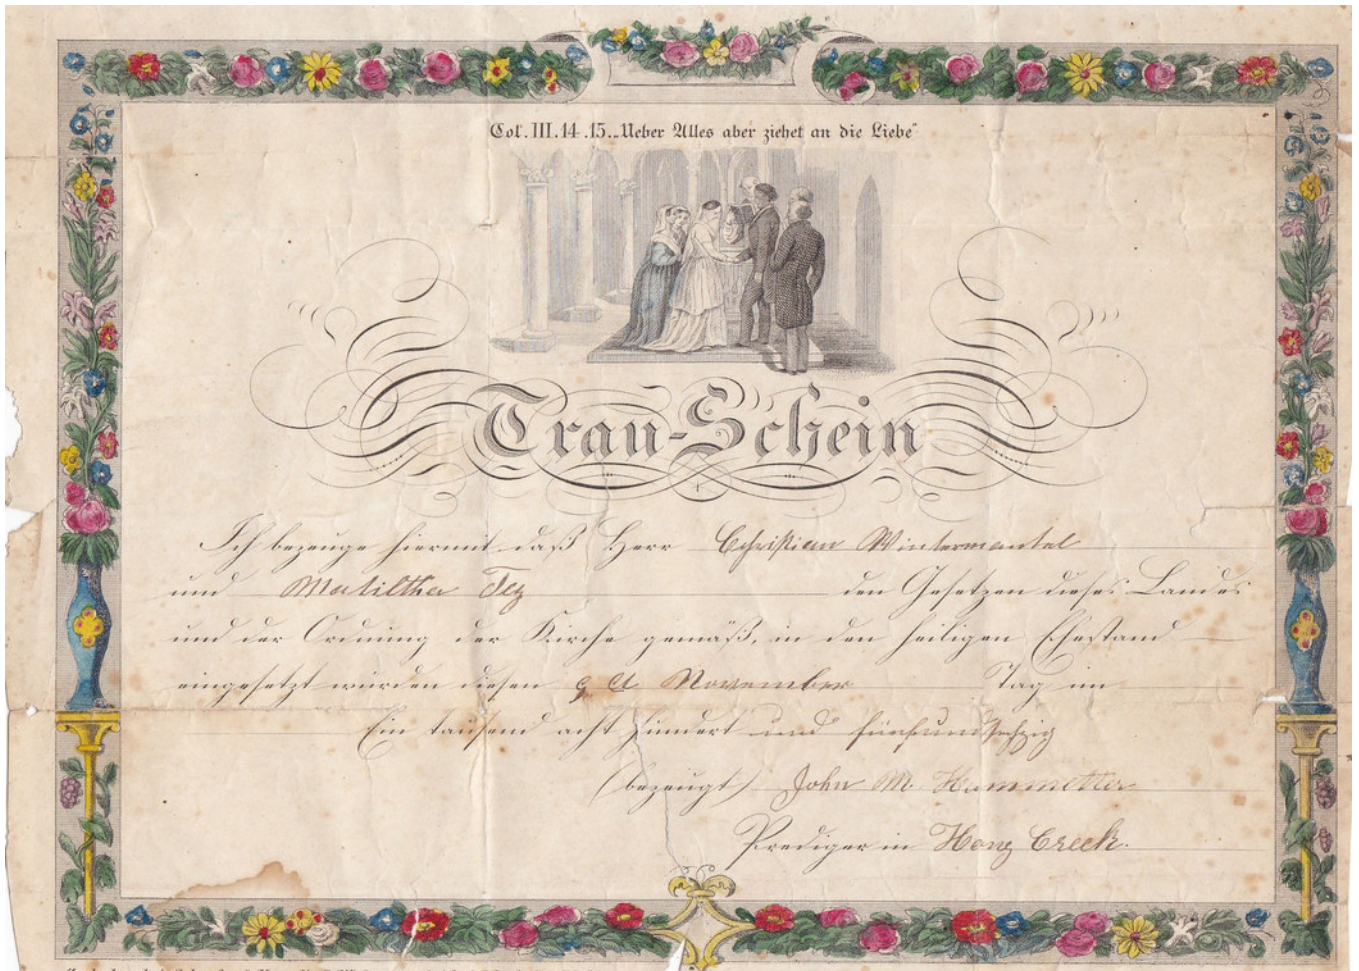 Col. III. 14. 15. „Ueber Alles aber ziehet an die Liebe"
Trau-Schein
Ich bezeuge hiermit daß Herr Christian Wintermantel
und Matiltha
den Gesetzen dieses Landes
und der Ordnung der Kirche gemäß, in den heiligen Ehestand
eingesetzt wurden diesen 9 November Tag im
Ein tausend acht Hundert und fünfundsechzig
(bezeugt) John M. Hammetter
Prediger in Creek.